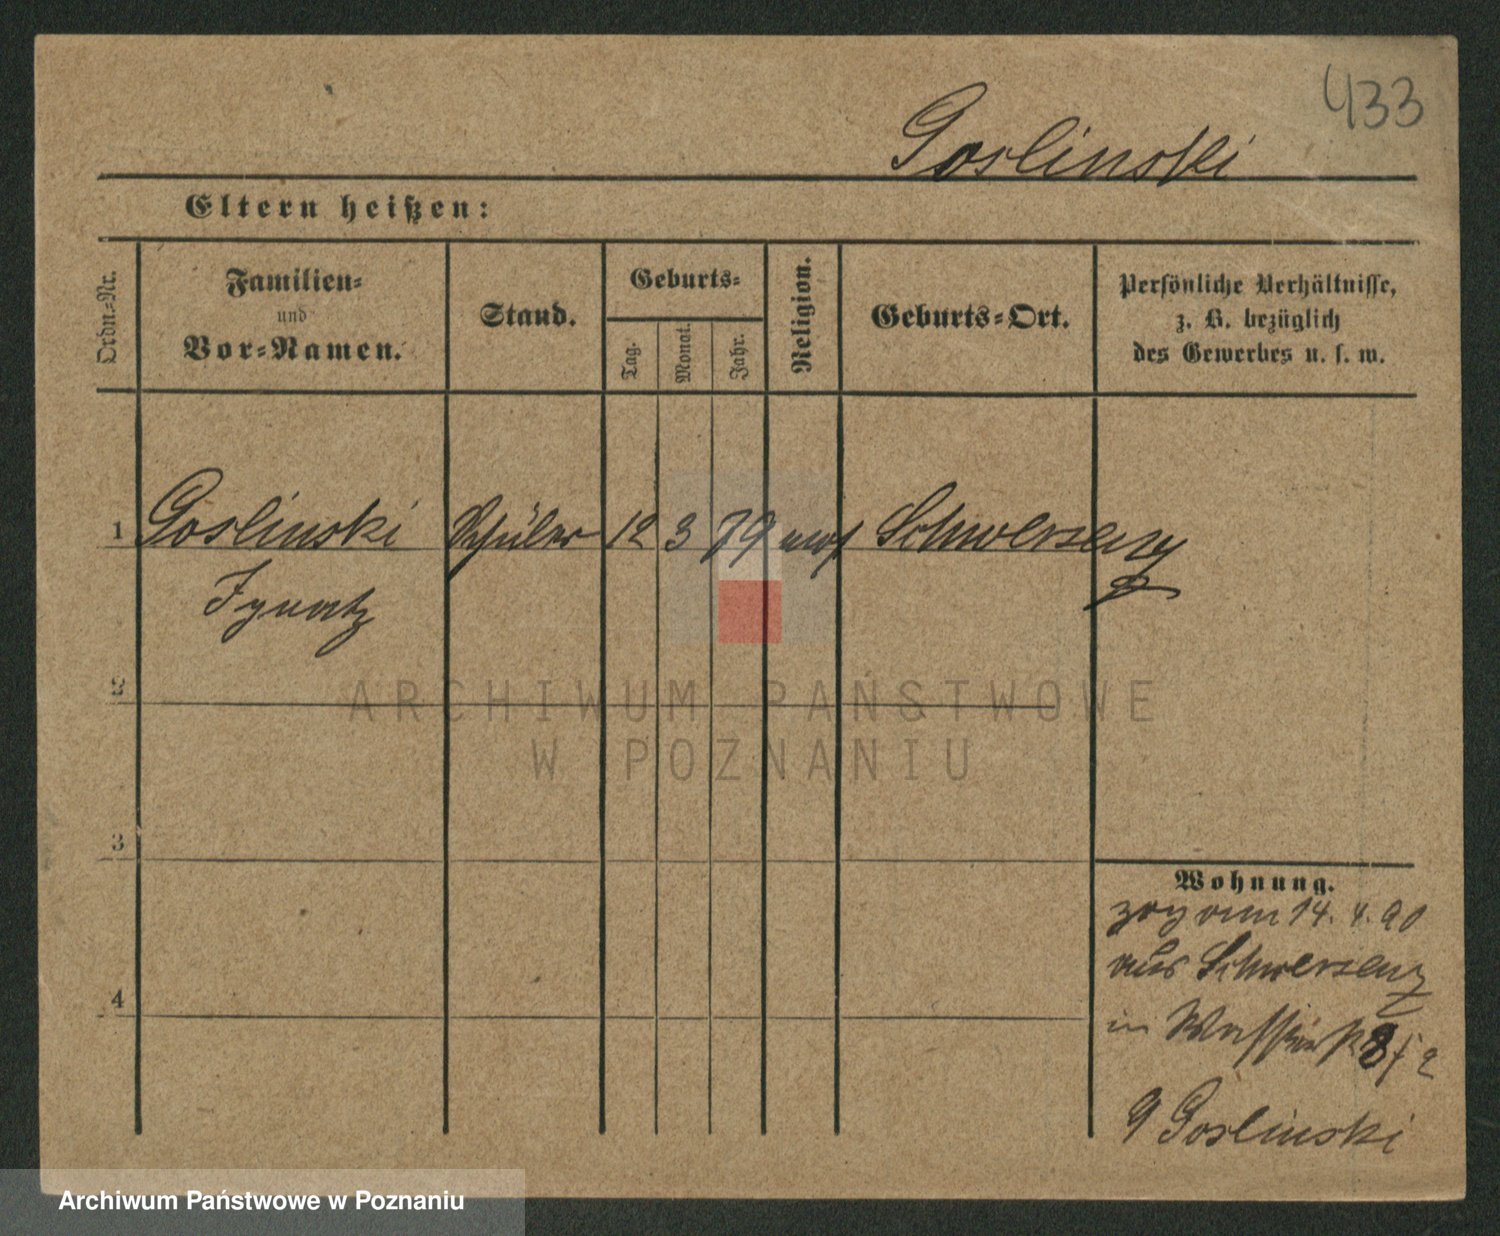 433
Goslinski
Eltern heißen:
Ordn.-Nr.
Familien-
und
Vor-Namen.
Stand.
Geburts-
Tag.
Monat.
Jahr.
Religion.
Geburts-Ort.
Persönliche Verhältnisse,
z. B. bezüglich
des Gewerbes u. s. w.
1 Goslinski Schüler 12 3 79 Schwersenz
Ignatz
2
ARCHIWUM PAŃSTWOWE
W POZNANIU
3
Wohnung.
zog am 14. 4. 90
aus Schwersenz
4
in
Goslinski
Archiwum Państwowe w Poznaniu